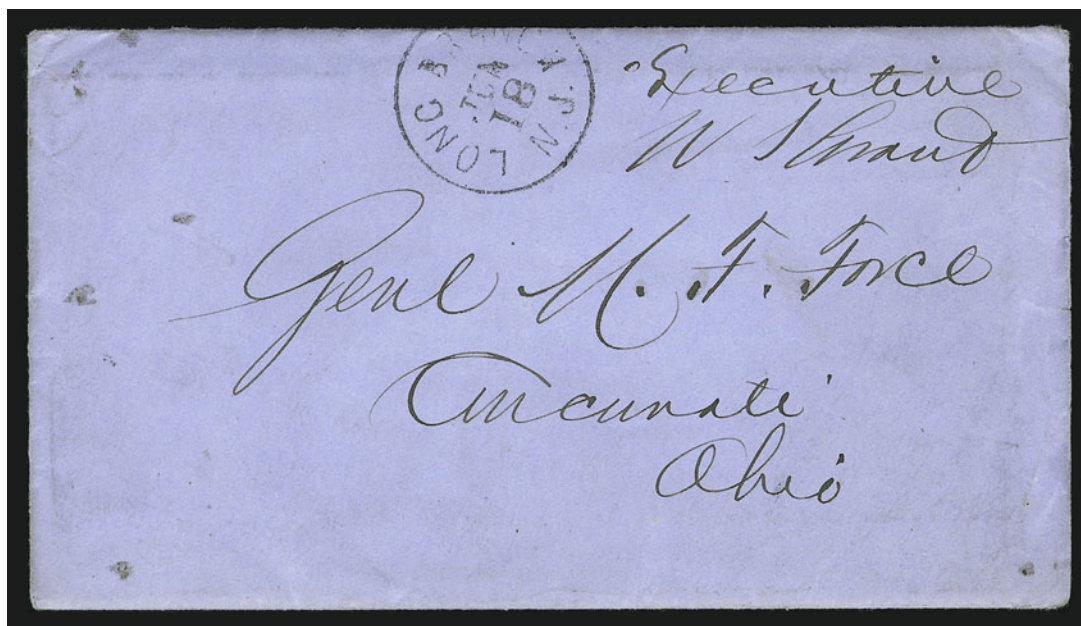 LONG BRANCH N.J.
JUN
18
Executive
U S Grant
Genl M. F. Force
Cincinnati
Ohio